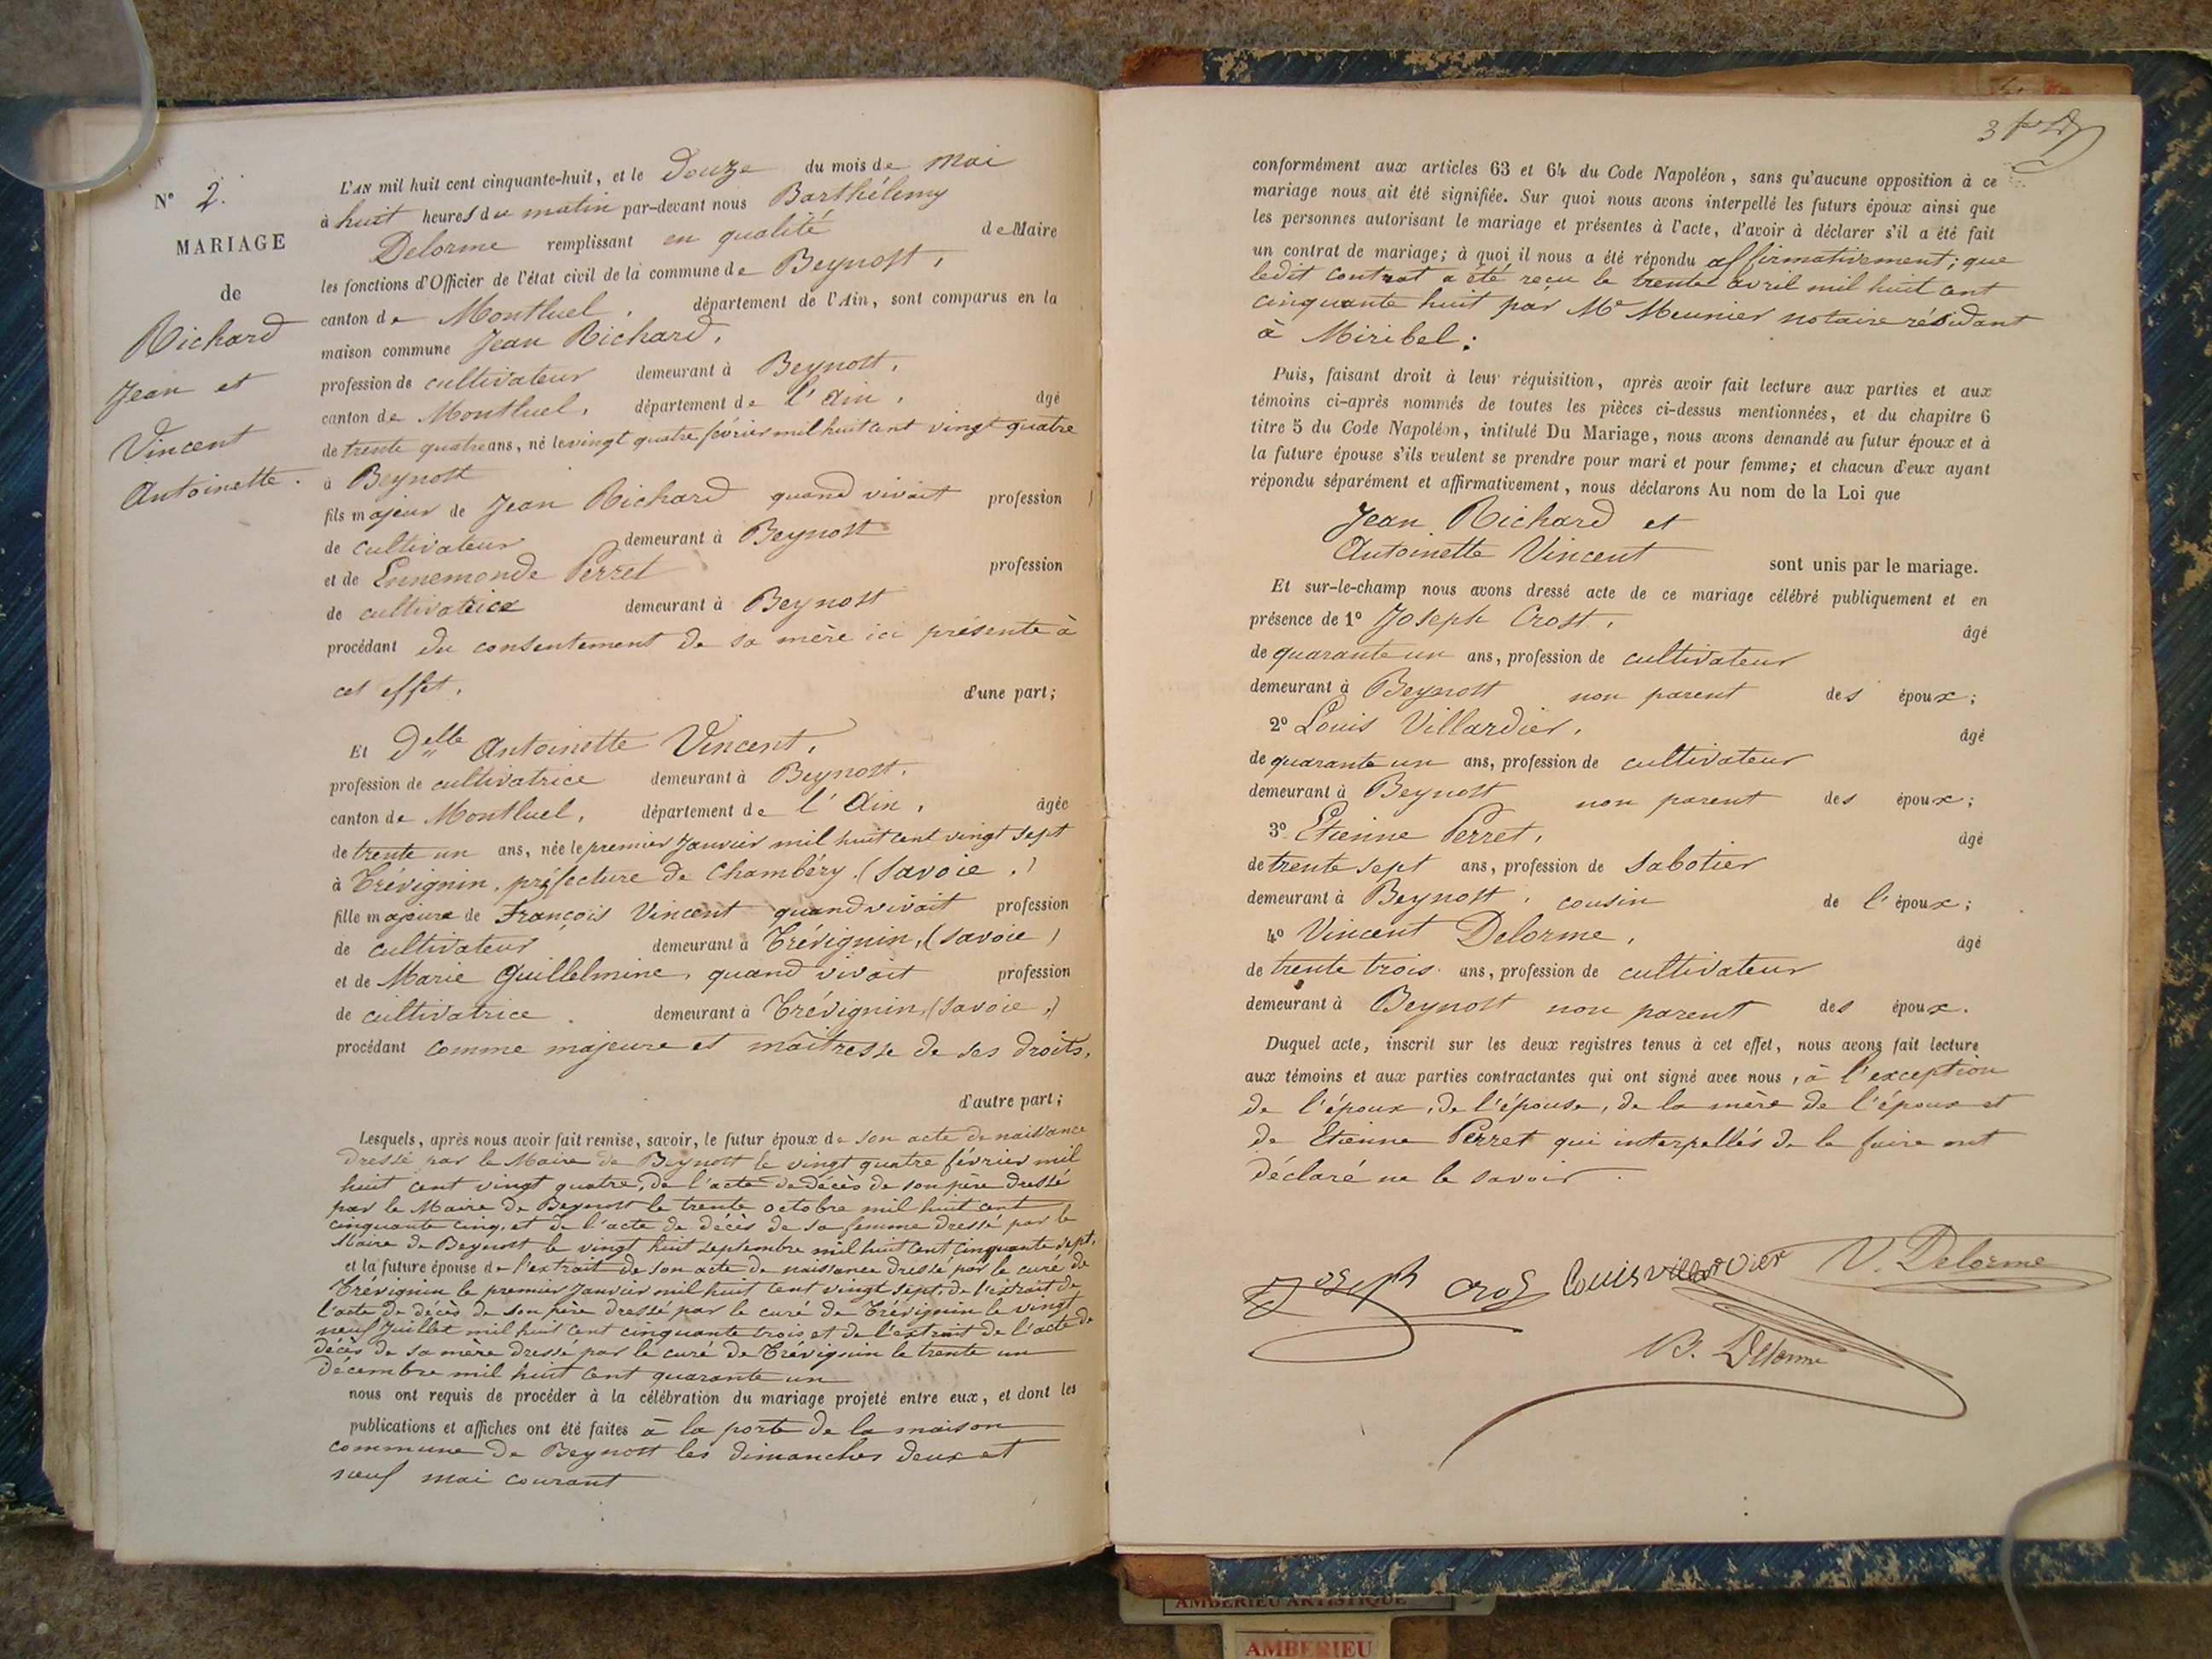 N° 2.
MARIAGE
de
Richard
Jean et
Vincent
Antoinette.
L'AN mil huit cent cinquante-huit, et le Douze du mois de Mai
à huit heures du matin par-devant nous Barthélemy
Delorme remplissant en qualité de Maire
les fonctions d'Officier de l'état civil de la commune de Beynost,
canton de Montluel, département de l'Ain, sont comparus en la
maison commune Jean Richard,
profession de cultivateur demeurant à Beynost,
canton de Montluel, département de l'Ain, âgé
de trente quatre ans, né le vingt quatre février mil huit cent vingt quatre
à Beynost
fils majeur de Jean Richard quand vivait profession
de cultivateur demeurant à Beynost
et de Ennemonde Perret profession
de cultivatrice demeurant à Beynost
procédant du consentement de sa mère ici présente à
cet effet, d'une part;
Et Delle Antoinette Vincent,
profession de cultivatrice demeurant à Beynost,
canton de Montluel, département de l'Ain, âgée
de trente un ans, née le premier Janvier mil huit cent vingt sept
à Trévignin, préfecture de Chambéry (Savoie,)
fille majeure de François Vincent quand vivait profession
de cultivateur demeurant à Trévignin, (Savoie)
et de Marie Guillelmine, quand vivait profession
de cultivatrice demeurant à Trévignin, (Savoie,)
procédant comme majeure et maitresse de ses droits,
d'autre part;
Lesquels, après nous avoir fait remise, savoir, le futur époux de son acte de naissance
dressé par le Maire de Beynost le vingt quatre février mil
huit cent vingt quatre, de l'acte de décès de son père dressé
par le Maire de Beynost le trente octobre mil huit cent
cinquante cinq, et de l'acte de décès de sa femme dressé par le
Maire de Beynost le vingt huit septembre mil huit cent cinquante sept,
et la future épouse de l'extrait de son acte de naissance dressé par le curé de
Trévignin le premier Janvier mil huit cent vingt sept, de l'extrait de
l'acte de décès de son père dressé par le curé de Trévignin le vingt
neuf Juillet mil huit cent cinquante trois et de l'extrait de l'acte de
décès de sa mère dressé par le curé de Trévignin le trente un
décembre mil huit cent quarante un
nous ont requis de procéder à la célébration du mariage projeté entre eux, et dont les
publications et affiches ont été faites à la porte de la maison
commune de Beynost les dimanches deux et
neuf mai courant
3
conformément aux articles 63 et 64 du Code Napoléon, sans qu'aucune opposition à ce
mariage nous ait été signifiée. Sur quoi nous avons interpellé les futurs époux ainsi que
les personnes autorisant le mariage et présentes à l'acte, d'avoir à déclarer s'il a été fait
un contrat de mariage; à quoi il nous a été répondu affirmativement; que
ledit contrat a été reçu le trente avril mil huit cent
cinquante huit par Me Meunier notaire résidant
à Miribel;
Puis, faisant droit à leur réquisition, après avoir fait lecture aux parties et aux
témoins ci-après nommés de toutes les pièces ci-dessus mentionnées, et du chapitre 6
titre 5 du Code Napoléon, intitulé Du Mariage, nous avons demandé au futur époux et à
la future épouse s'ils veulent se prendre pour mari et pour femme; et chacun d'eux ayant
répondu séparément et affirmativement, nous déclarons Au nom de la Loi que
Jean Richard et
Antoinette Vincent sont unis par le mariage.
Et sur-le-champ nous avons dressé acte de ce mariage célébré publiquement et en
présence de 1° Joseph Crost, âgé
de quarante un ans, profession de cultivateur
demeurant à Beynost non parent des époux;
2° Louis Villardier, âgé
de quarante un ans, profession de cultivateur
demeurant à Beynost non parent des époux;
3° Etienne Perret, âgé
de trente sept ans, profession de sabotier
demeurant à Beynost, cousin de l'époux;
4° Vincent Delorme, âgé
de trente trois ans, profession de cultivateur
demeurant à Beynost non parent des époux.
Duquel acte, inscrit sur les deux registres tenus à cet effet, nous avons fait lecture
aux témoins et aux parties contractantes qui ont signé avec nous, à l'exception
de l'époux, de l'épouse, de la mère de l'époux et
de Etienne Perret qui interpellés de le faire ont
déclaré ne le savoir.
Joseph Crost Louis villardier V. Delorme
B. Delorme
AMBERIEU ARTISTIQUE
AMBERIEU